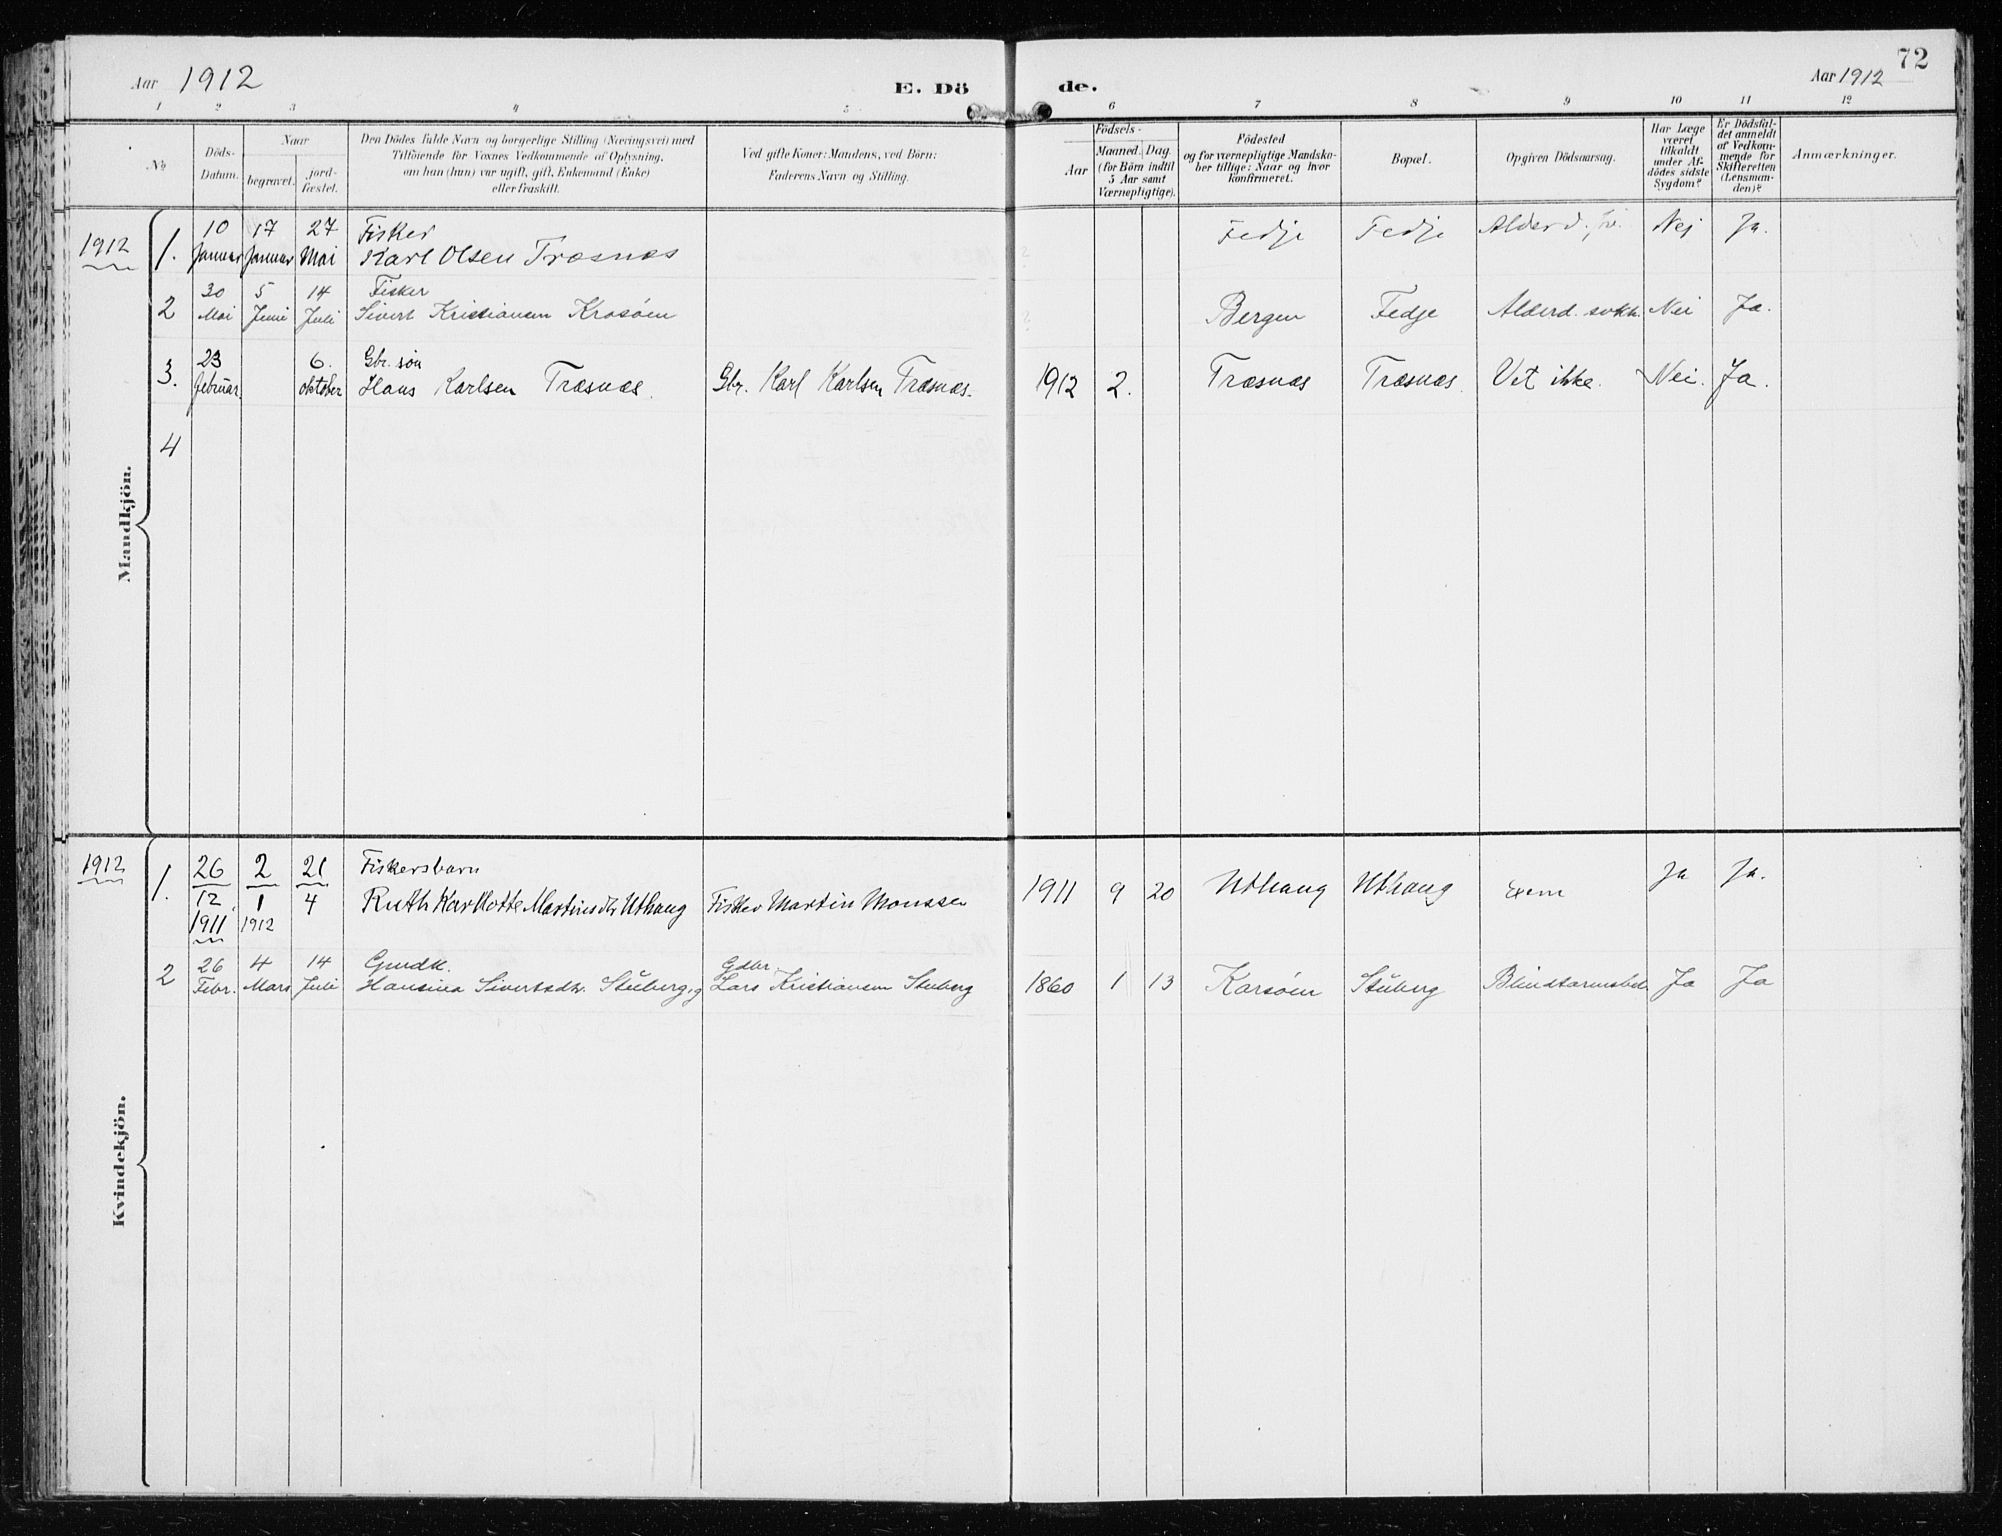 Aar 1912
E. Dö
de.
Aar 1912
72
1 2 3 4 5 6 7 8 9 10 11 12
No.
Döds-
Datum.
Naar
begravet.
jord-
fæstet.
Den Dödes fulde Navn og borgerlige Stilling (Næringsvei) med
Tilföiende for Voxnes Vedkommende af Oplysning,
om han (hun) var ugift, gift, Enkemand (Enke)
eller fraskilt.
Ved gifte Koner: Mandens, ved Börn:
Faderens Navn og Stilling.
Födsels-
Aar
Maaned. Dag.
(for Börn indtil
5 Aar samt
Værnepligtige).
Födested
og for værnepligtige Mandska-
ber tillige: Naar og hvor
konfirmeret.
Bopæl.
Opgiven Dödsaarsag.
Har Læge
været
tilkaldt
under Af-
dödes sidste
Sygdom?
Er Dödsfal-
det anmeldt
af Vedkom-
mende for
Skifteretten
(Lensman-
den)?
Anmærkninger.
Mandkjön.
1912
1. 10 Januar 17 Januar 27 Mai
Fisker
Karl Olsen Træsnæs
Fedje Fedje Alderd. Nej Ja.
2 30 Mai 5 Juni 14 Juli
Fisker
Sivert Kristiansen Krosøen
Bergen Fedje Alderd. svkk. Nei Ja.
3. 23 februar. 6. oktober
Gbr. søn
Hans Karlsen Træsnæs.
Gbr. Karl Karlsen Træsnæs.
1912 2. Træsnæs Træsnæs Vet ikke. Nei. Ja.
4
Kvindekjön.
1912
1. 26 12 1911 2 1 1912 21 4
Fiskersbarn
Ruth Karllotte Martinsdtr Uthaug
Fisker Martin Monssen
1911 9 20 Uthaug Uthaug Exem Ja Ja.
2 26 Febr. 4 Mars 14 Juli
Gmdk.
Hansina Sivertsdtr. Stuberg, g
Gdbr.
Lars Kristiansen Stuberg
1860 1 13 Karsøen Stuberg Blindtarmsbet. Ja Ja